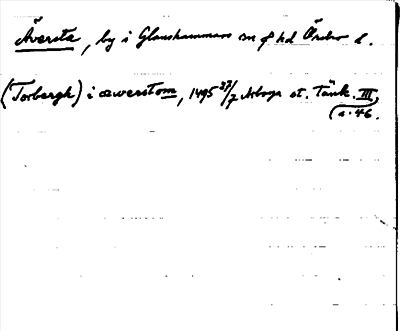 Äversta, by i Glanshammars sn o hd Örebro l.
(Torbergh) i æwerstom, 1495 27/7 Arboga st. Tänk. III,
s. 46.